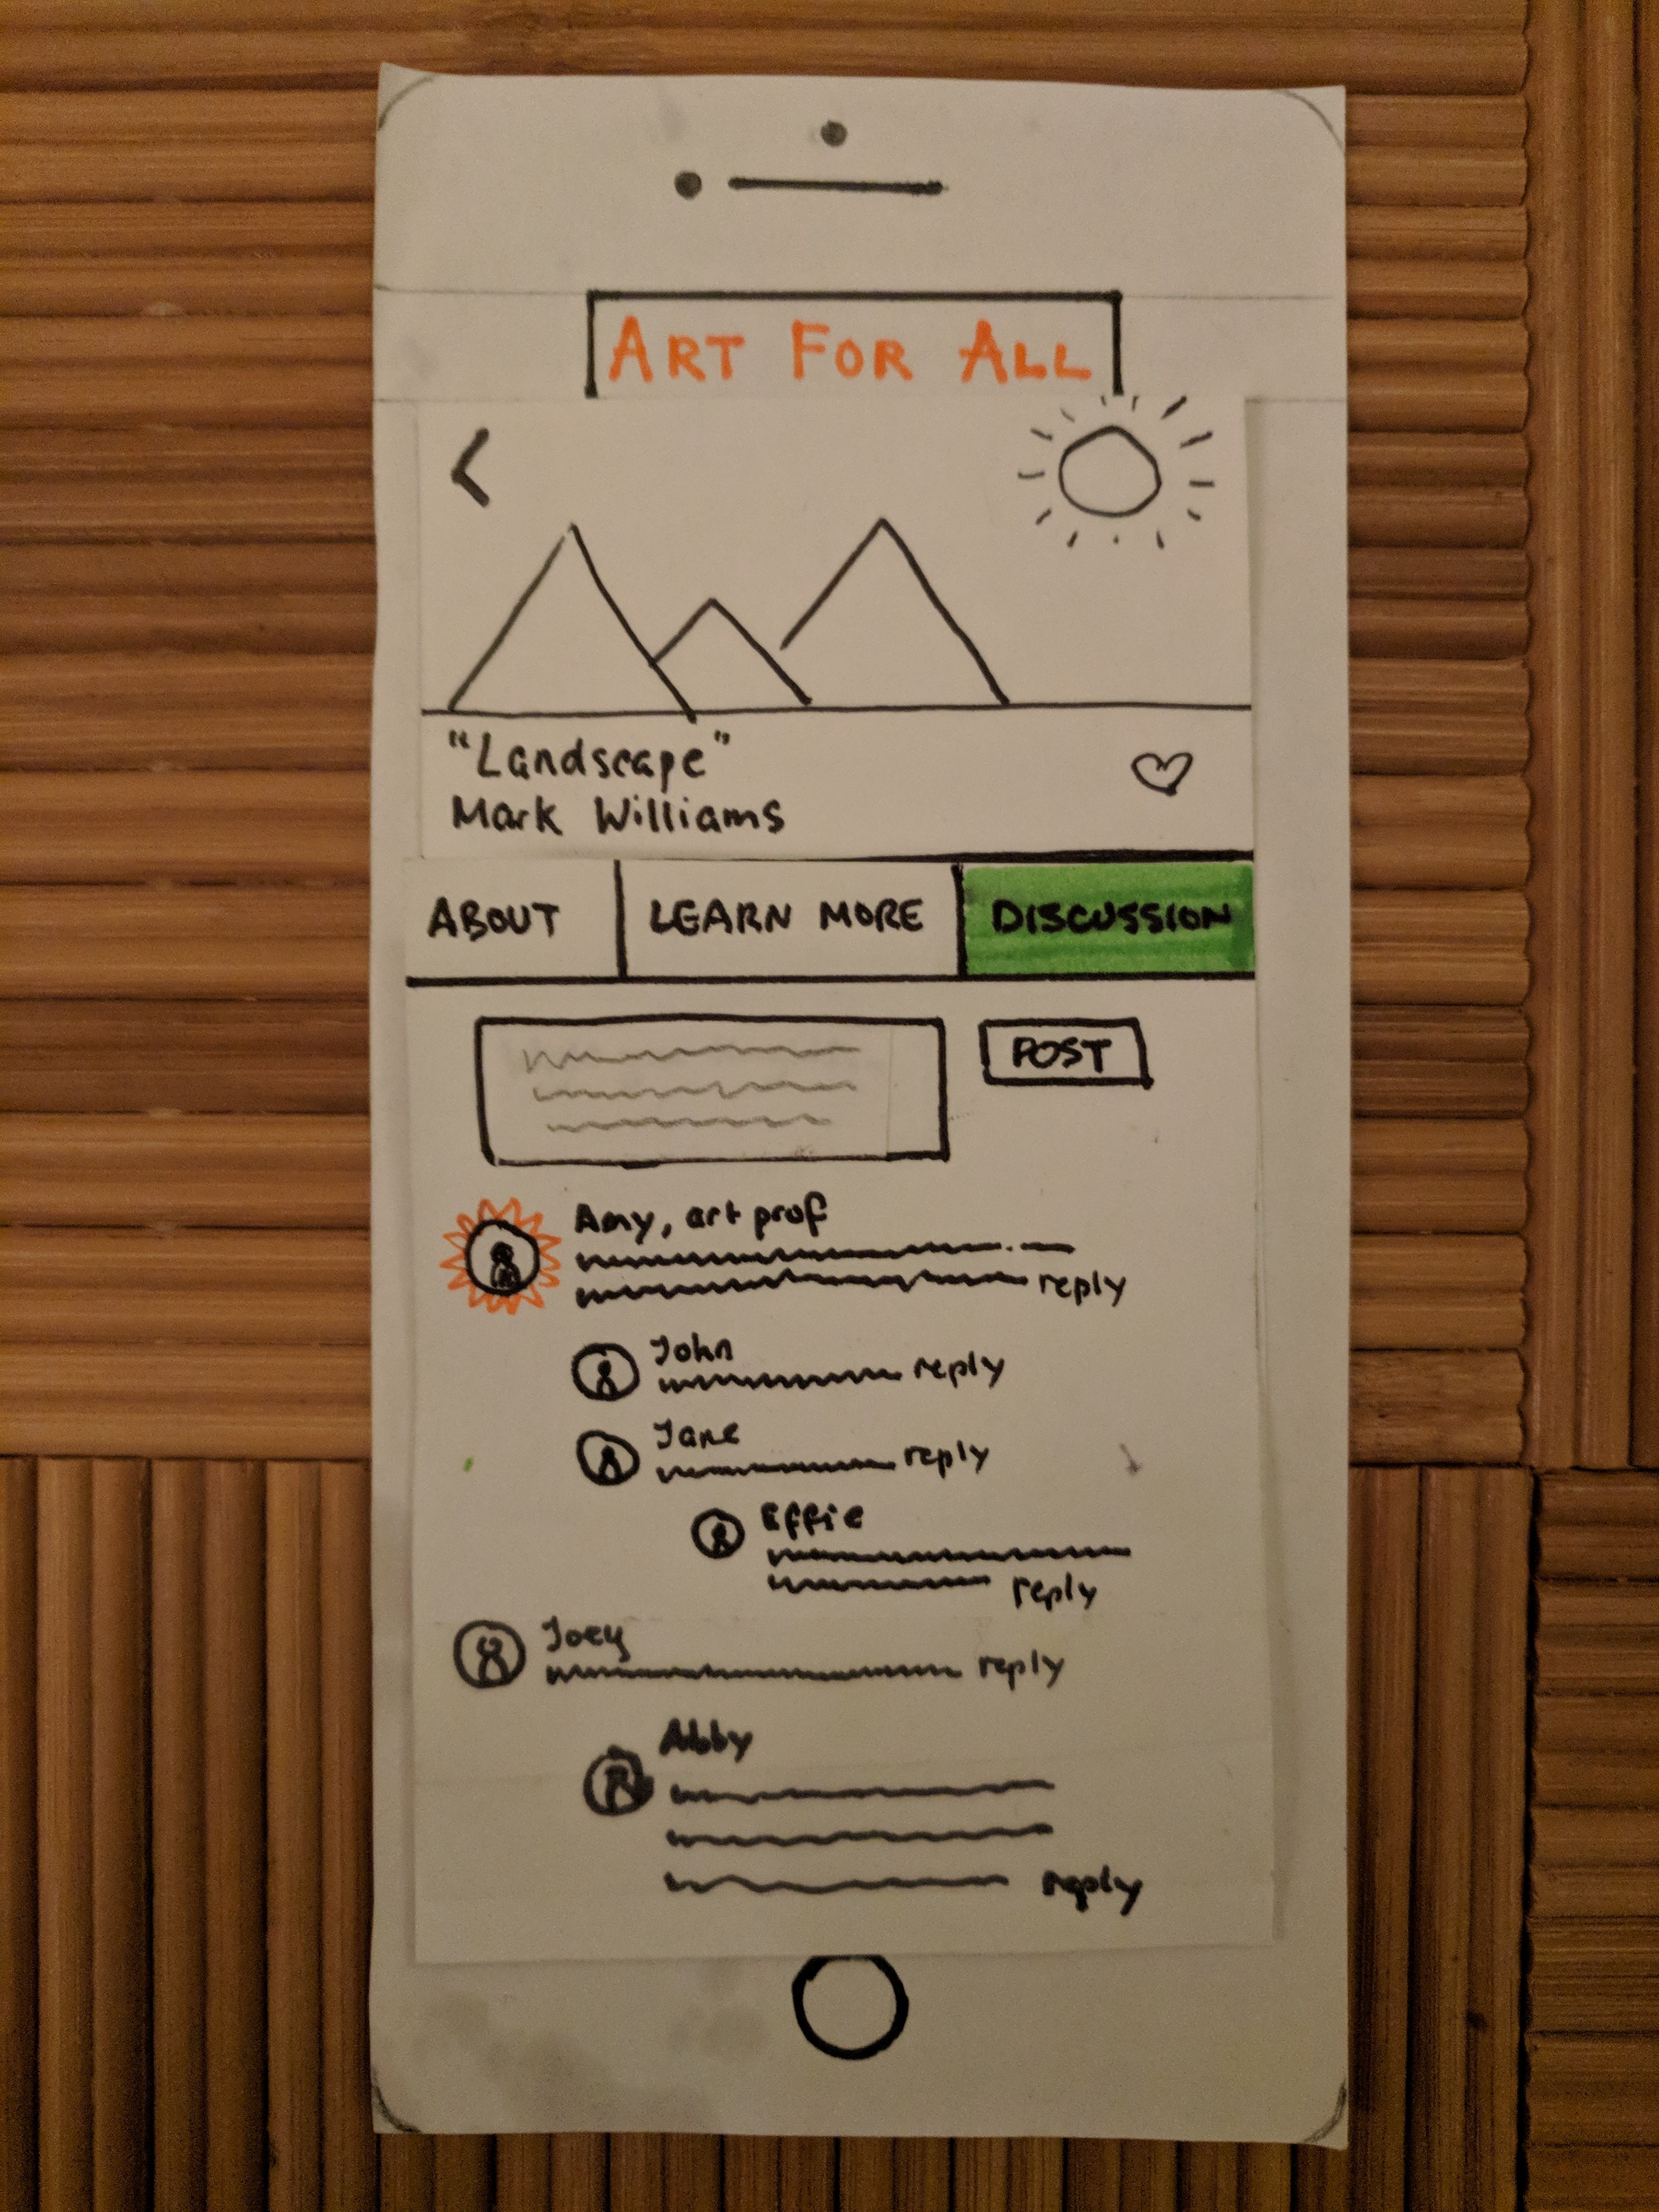 ART FOR ALL
<
"Landscape"
Mark Williams
ABOUT
LEARN MORE
DISCUSSION
POST
Amy, art prof
reply
John
reply
Jane
reply
Effie
reply
Joey
reply
Abby
reply